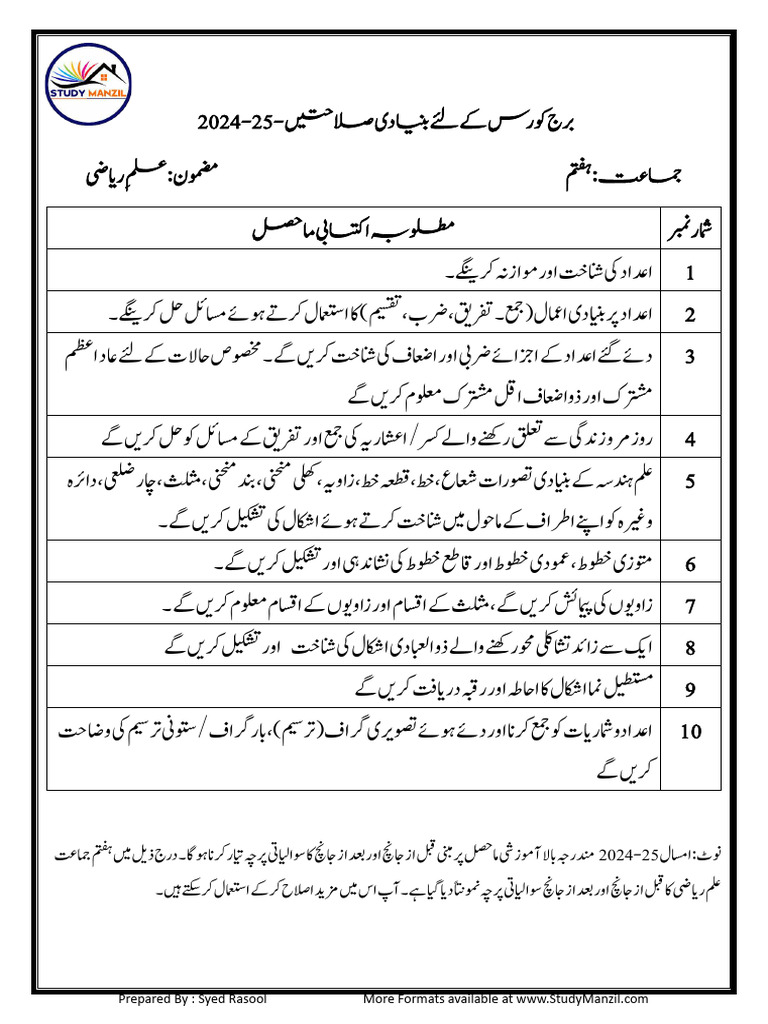 STUDY MANZIL
برج کورس کے لئے بنیادی صلاحتیں-25-2024
جماعت: ہفتم مضمون: علمِ ریاضی
شمار نمبر مطلوبہ اکتسابی ماحصل
1 اعداد کی شناخت اور موازنہ کرینگے۔
2 اعداد پر بنیادی اعمال (جمع۔ تفریق، ضرب، تقسیم) کا استعمال کرتے ہوئے مسائل حل کرینگے۔
3 دئے گئے اعداد کے اجزائے ضربی اور اضعاف کی شناخت کریں گے۔ مخصوص حالات کے لئے عاد اعظم
مشترک اور ذو اضعاف اقل مشترک معلوم کریں گے
4 روز مرہ زندگی سے تعلق رکھنے والے کسر/اعشاریہ کی جمع اور تفریق کے مسائل کو حل کریں گے
5 علم ہندسہ کے بنیادی تصورات شعاع، خط، قطعہ خط، زاویہ، کھلی منحنی، بند منحنی، مثلث، چار ضلعی، دائرہ
وغیرہ کو اپنے اطراف کے ماحول میں شناخت کرتے ہوئے اشکال کی تشکیل کریں گے۔
6 متوزی خطوط، عمودی خطوط اور قاطع خطوط کی نشاندہی اور تشکیل کریں گے۔
7 زاویوں کی پیمائش کریں گے، مثلث کے اقسام اور زاویوں کے اقسام معلوم کریں گے۔
8 ایک سے زائد تشاکلی محور رکھنے والے ذوالعبادی اشکال کی شناخت اور تشکیل کریں گے
9 مستطیل نما اشکال کا احاطہ اور رقبہ دریافت کریں گے
10 اعداد و شماریات کو جمع کرنا اور دئے ہوئے تصویری گراف (ترسیم)، بار گراف/ستونی ترسیم کی وضاحت
کریں گے
نوٹ: امسال 25-2024 مندرجہ بالا آموزشی ماحصل پر مبنی قبل از جانچ اور بعد از جانچ کا سوالیاتی پرچہ تیار کرنا ہوگا۔ درج ذیل میں ہفتم جماعت
علم ریاضی کا قبل از جانچ اور بعد از جانچ سوالیاتی پرچہ نمونتاً دیا گیا ہے۔ آپ اس میں مزید اصلاح کر کے استعمال کر سکتے ہیں۔
Prepared By : Syed Rasool More Formats available at www.StudyManzil.com